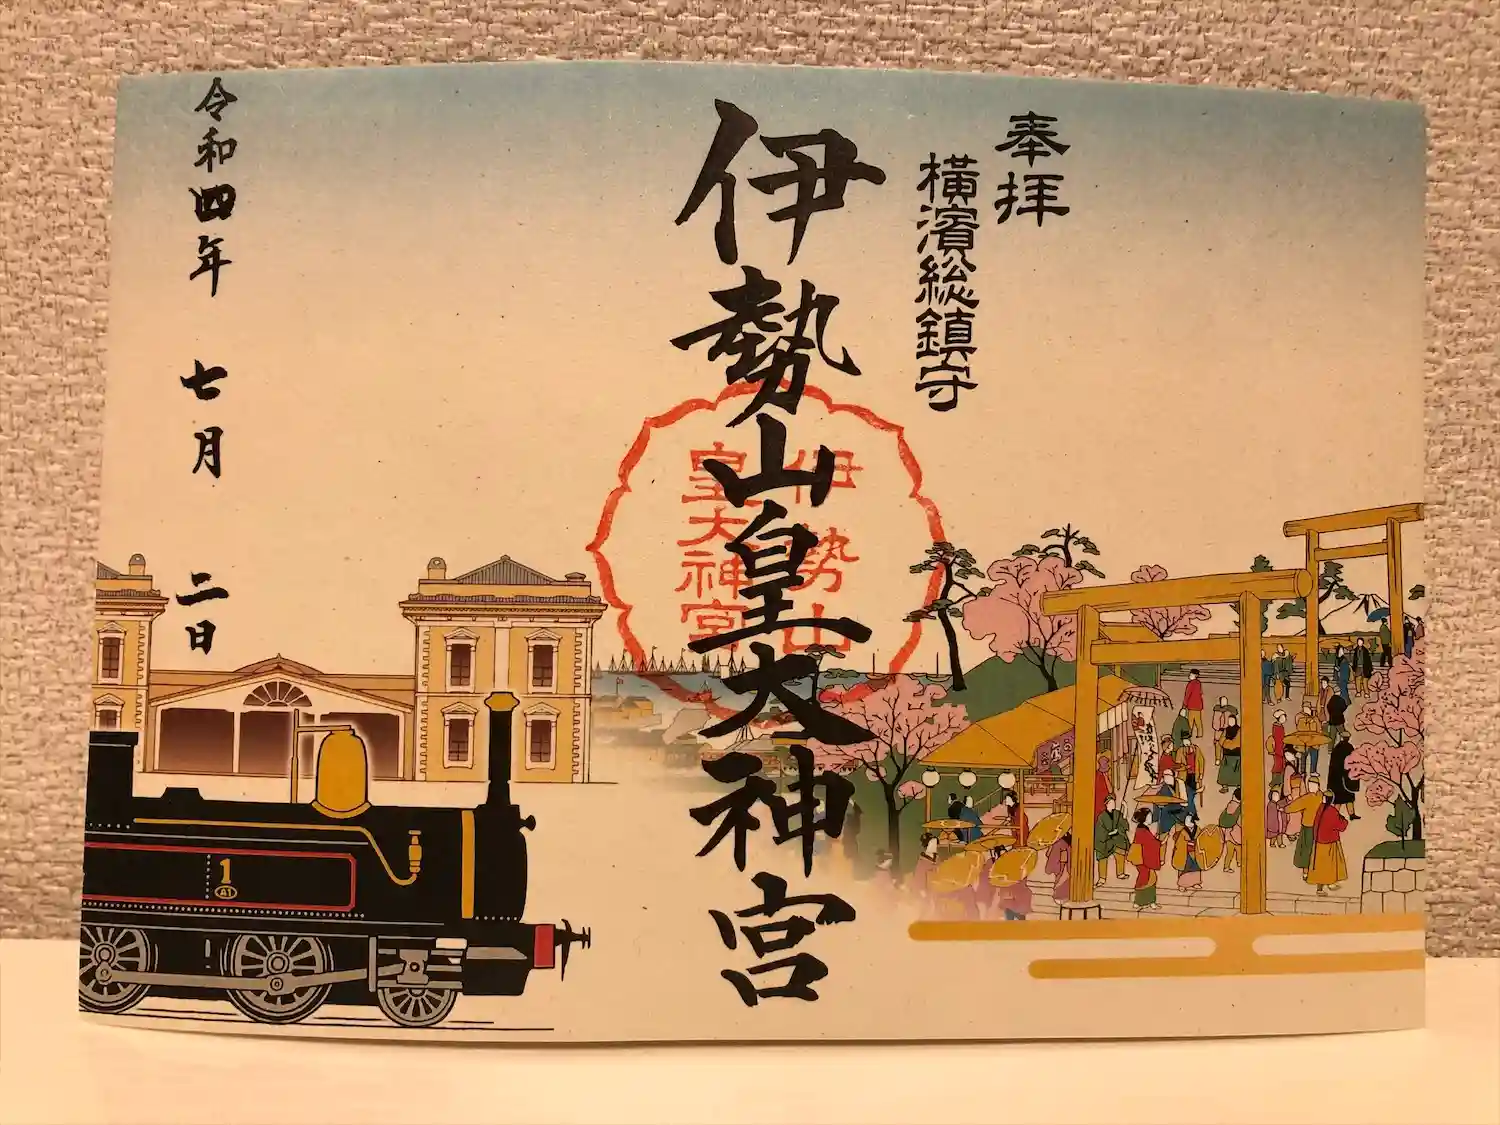 奉拝
横濱総鎮守
伊勢山皇大神宮
伊勢山
皇大神宮
令和四年 七月 二日
1
A1